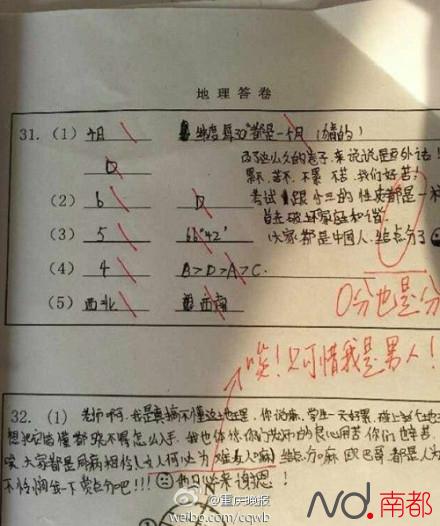 地理答卷
31. (1) 4月 纬度每30°都是一个月 (猜的)
D
改了这么久的卷子,来说说题外话!
累不,苦不,不累 不苦 我们好苦!
(2) b D 考试跟小三的性质都是一样
都是破坏家庭和谐
(3) 5 66°42′ 大家都是中国人,给点分了
(4) 4 B>D>A>C.
0分也是分
(5) 西北 西南
唉!只可惜我是男人!
32. (1) 老师啊,我是真搞不懂这地理,你说嘛,学生一天好累,
想把它搞懂都晓不得怎么入手,我也体谅你们老师的良心用苦 你们也辛苦,
唉,大家都是同病相怜(女人何必为难女人嘛)给点分嘛 欧巴哥都是人
不怜悯我一下 赏点分吧!!! 谢恩!
@重庆晚报
weibo.com/cqwb
Nd.南都